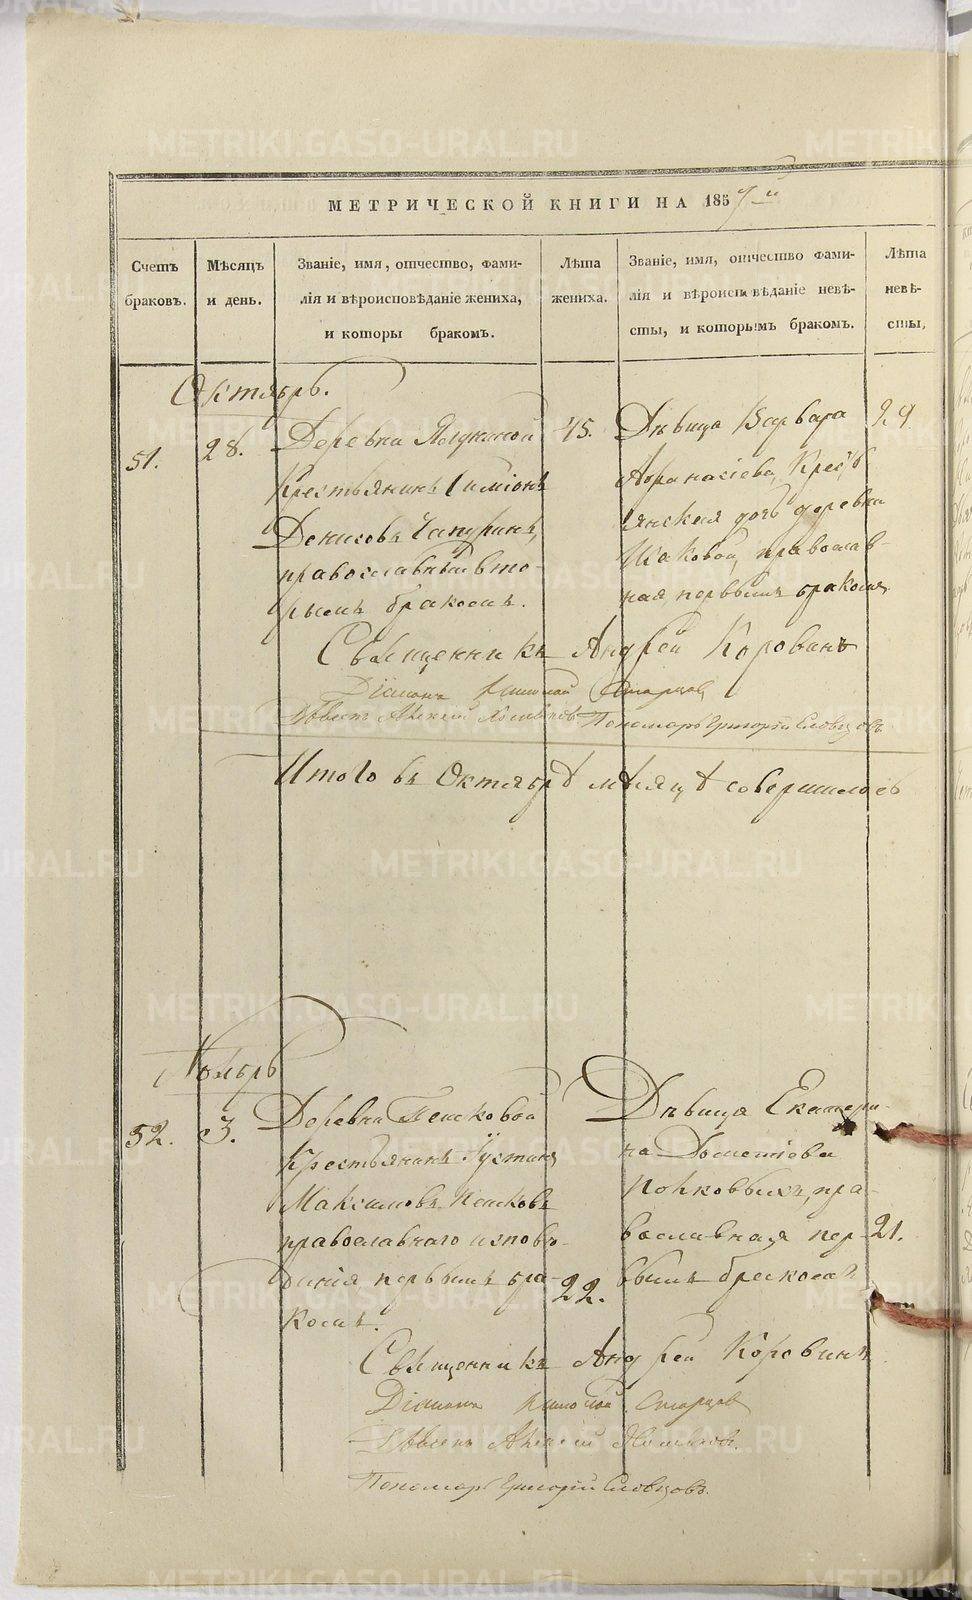 МЕТРИЧЕСКОЙ КНИГИ НА 1857 й
Счетъ браковъ.
Мѣсяцъ и день.
Званіе, имя, отчество, фами-
лія и вѣроисповѣданіе жениха,
и которы бракомъ.
Лѣта жениха.
Званіе, имя, отчество фами-
лія и вѣроисповѣданіе невѣ-
сты, и которымъ бракомъ.
Лѣта невѣ-
сты,
Октябрь.
51.
28.
Деревни
Крестьянинъ Симіонъ
Денисовъ Чапуринъ,
православный вто-
рымъ бракомъ.
45.
Дѣвица Варвара
Афанасіева, Кресть
янская дочь деревни
Исаковой, православ-
ная, первымъ бракомъ.
29.
Священникъ Андрей Коровинъ
Діаконъ Николай Старцов
Алексей Пономарь Григорій Словцовъ
Итого въ Октябрѣ мѣсяцѣ совершилось
Ноябрь
52.
3.
Деревни Пешковой
Крестьянинъ Іустинъ
Максимовъ Пешковъ
православнаго исповѣ-
данія, первымъ бра-
комъ.
22.
Дѣвица Екатери-
на Дометіева
православная пер-
вымъ бракомъ
21.
Священникъ Андрей Коровинъ
Діаконъ Николай Старцов
Алексей
Пономарь Григорій Словцовъ.
METRIKI.GASO-URAL.RU